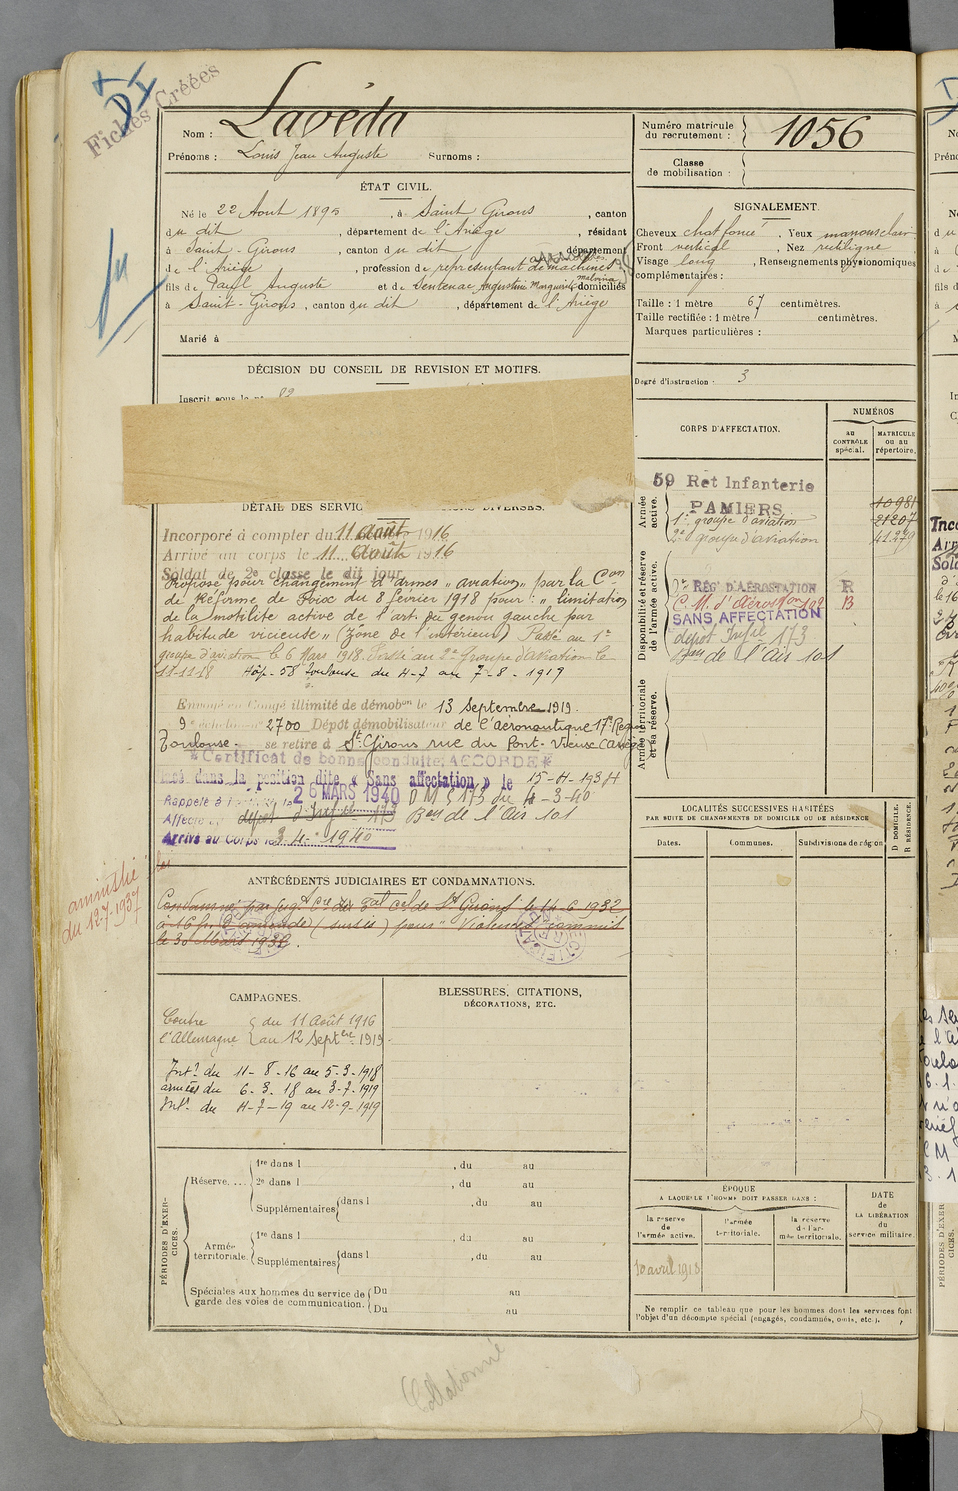 Fiches Créées
DI
Nom : Lavéda
Prénoms : Louis Jean Auguste Surnoms :
Numéro matricule du recrutement : 1056
Classe de mobilisation :
ÉTAT CIVIL.
Né le 22 Aout 1895, à Saint Girons, canton
du dit, département de l'Ariège, résidant
à Saint-Girons, canton du dit, département
de l'Ariège, profession de représentant de machines
fils de Paul Auguste et de Sentenac Augustine Marguerite domiciliés
à Saint-Girons, canton du dit, département de l'Ariège
Marié à
SIGNALEMENT.
Cheveux chat foncé. Yeux marrons clair
Front vertical, Nez rectiligne
Visage long, Renseignements physionomiques
complémentaires :
Taille : 1 mètre 67 centimètres.
Taille rectifiée : 1 mètre centimètres.
Marques particulières :
Degré d'instruction : 3
DÉCISION DU CONSEIL DE REVISION ET MOTIFS.
Inscrit sous le n° 82
CORPS D'AFFECTATION.
NUMÉROS
au CONTRÔLE spécial.
MATRICULE ou au répertoire.
Armée active.
59 Rét Infanterie
PAMIERS
10981
1er groupe d'aviation 21207
2e groupe d'aviation
Disponibilité et réserve de l'armée active.
2e RÉG D'AÉROSTATION R
B
SANS AFFECTATION
dépôt Infie 173
Bon de l'Air 101
Armée territoriale et sa réserve.
DÉTAIL DES SERVIC DIVERSES.
Incorporé à compter du 11 Août 1916
Arrivé au corps le 11 Août 1916
Soldat de 2e classe le dit jour
Proposé pour changement d'armes "aviation" par la Con
de Réforme de Foix du 8 février 1918 pour : "limitation
de la motilité active de l'art. du genou gauche par
habitude vicieuse" (Zône de l'intérieur) Passé au 1er
groupe d'aviation le 6 Mars 1918. Passé au 2e Groupe d'aviation le
11-11-18 Hôp. 58 Toulouse du 4-7 au 7-8-1919
Envoyé en Congé illimité de démobon le 13 septembre 1919.
9e échelon n° 2700 Dépôt démobilisateur de l'Aéronautique 17e Région
Toulouse. se retire à St Girons rue du Pont-Vieux (Ariège)
"Certificat de bonne conduite" ACCORDÉ
lassé dans la position dite « Sans affectation » le 15-4-1934
Rappelé à l'activité le 26 MARS 1940 D M 5173 du 4-3-40
Affecté au dépôt d'Infie 173 Bon de l'Air 101
Arrivé au Corps le 3-4-1940
amnistié
du 12-7-1937
ANTÉCÉDENTS JUDICIAIRES ET CONDAMNATIONS.
Condamné par jugt de St Girons le 14-6-1932
à 16 fr. d'amende (sursis) pour "Violences" commis
le 30 Mars 1932.
RECTIFICATION
CAMPAGNES.
Contre du 11 Août 1916
l'Allemagne au 12 Septbre 1919.
Intr du 11-8-16 au 5-3-1918
armées du 6-3-18 au 3-7-1919
Intr du 4-7-19 au 12-9-1919
BLESSURES, CITATIONS,
DÉCORATIONS, ETC.
LOCALITÉS SUCCESSIVES HABITÉES
PAR SUITE DE CHANGEMENTS DE DOMICILE OU DE RÉSIDENCE
Dates. Communes. Subdivisions de région
D DOMICILE.
R RÉSIDENCE.
PÉRIODES D'EXERCICES.
Réserve.... 1re dans l , du au
2e dans l , du au
Supplémentaires dans l , du au
Armée territoriale. 1re dans l , du au
Supplémentaires dans l , du au
Spéciales aux hommes du service de garde des voies de communication. Du au
Du au
ÉPOQUE
A LAQUELLE L'HOMME DOIT PASSER DANS :
la réserve de l'armée active.
l'armée territoriale.
la réserve de l'armée territoriale.
DATE DE LA LIBÉRATION du service militaire.
10 avril 1918
Ne remplir ce tableau que pour les hommes dont les services font
l'objet d'un décompte spécial (engagés, condamnés, omis, etc.).
Collationné